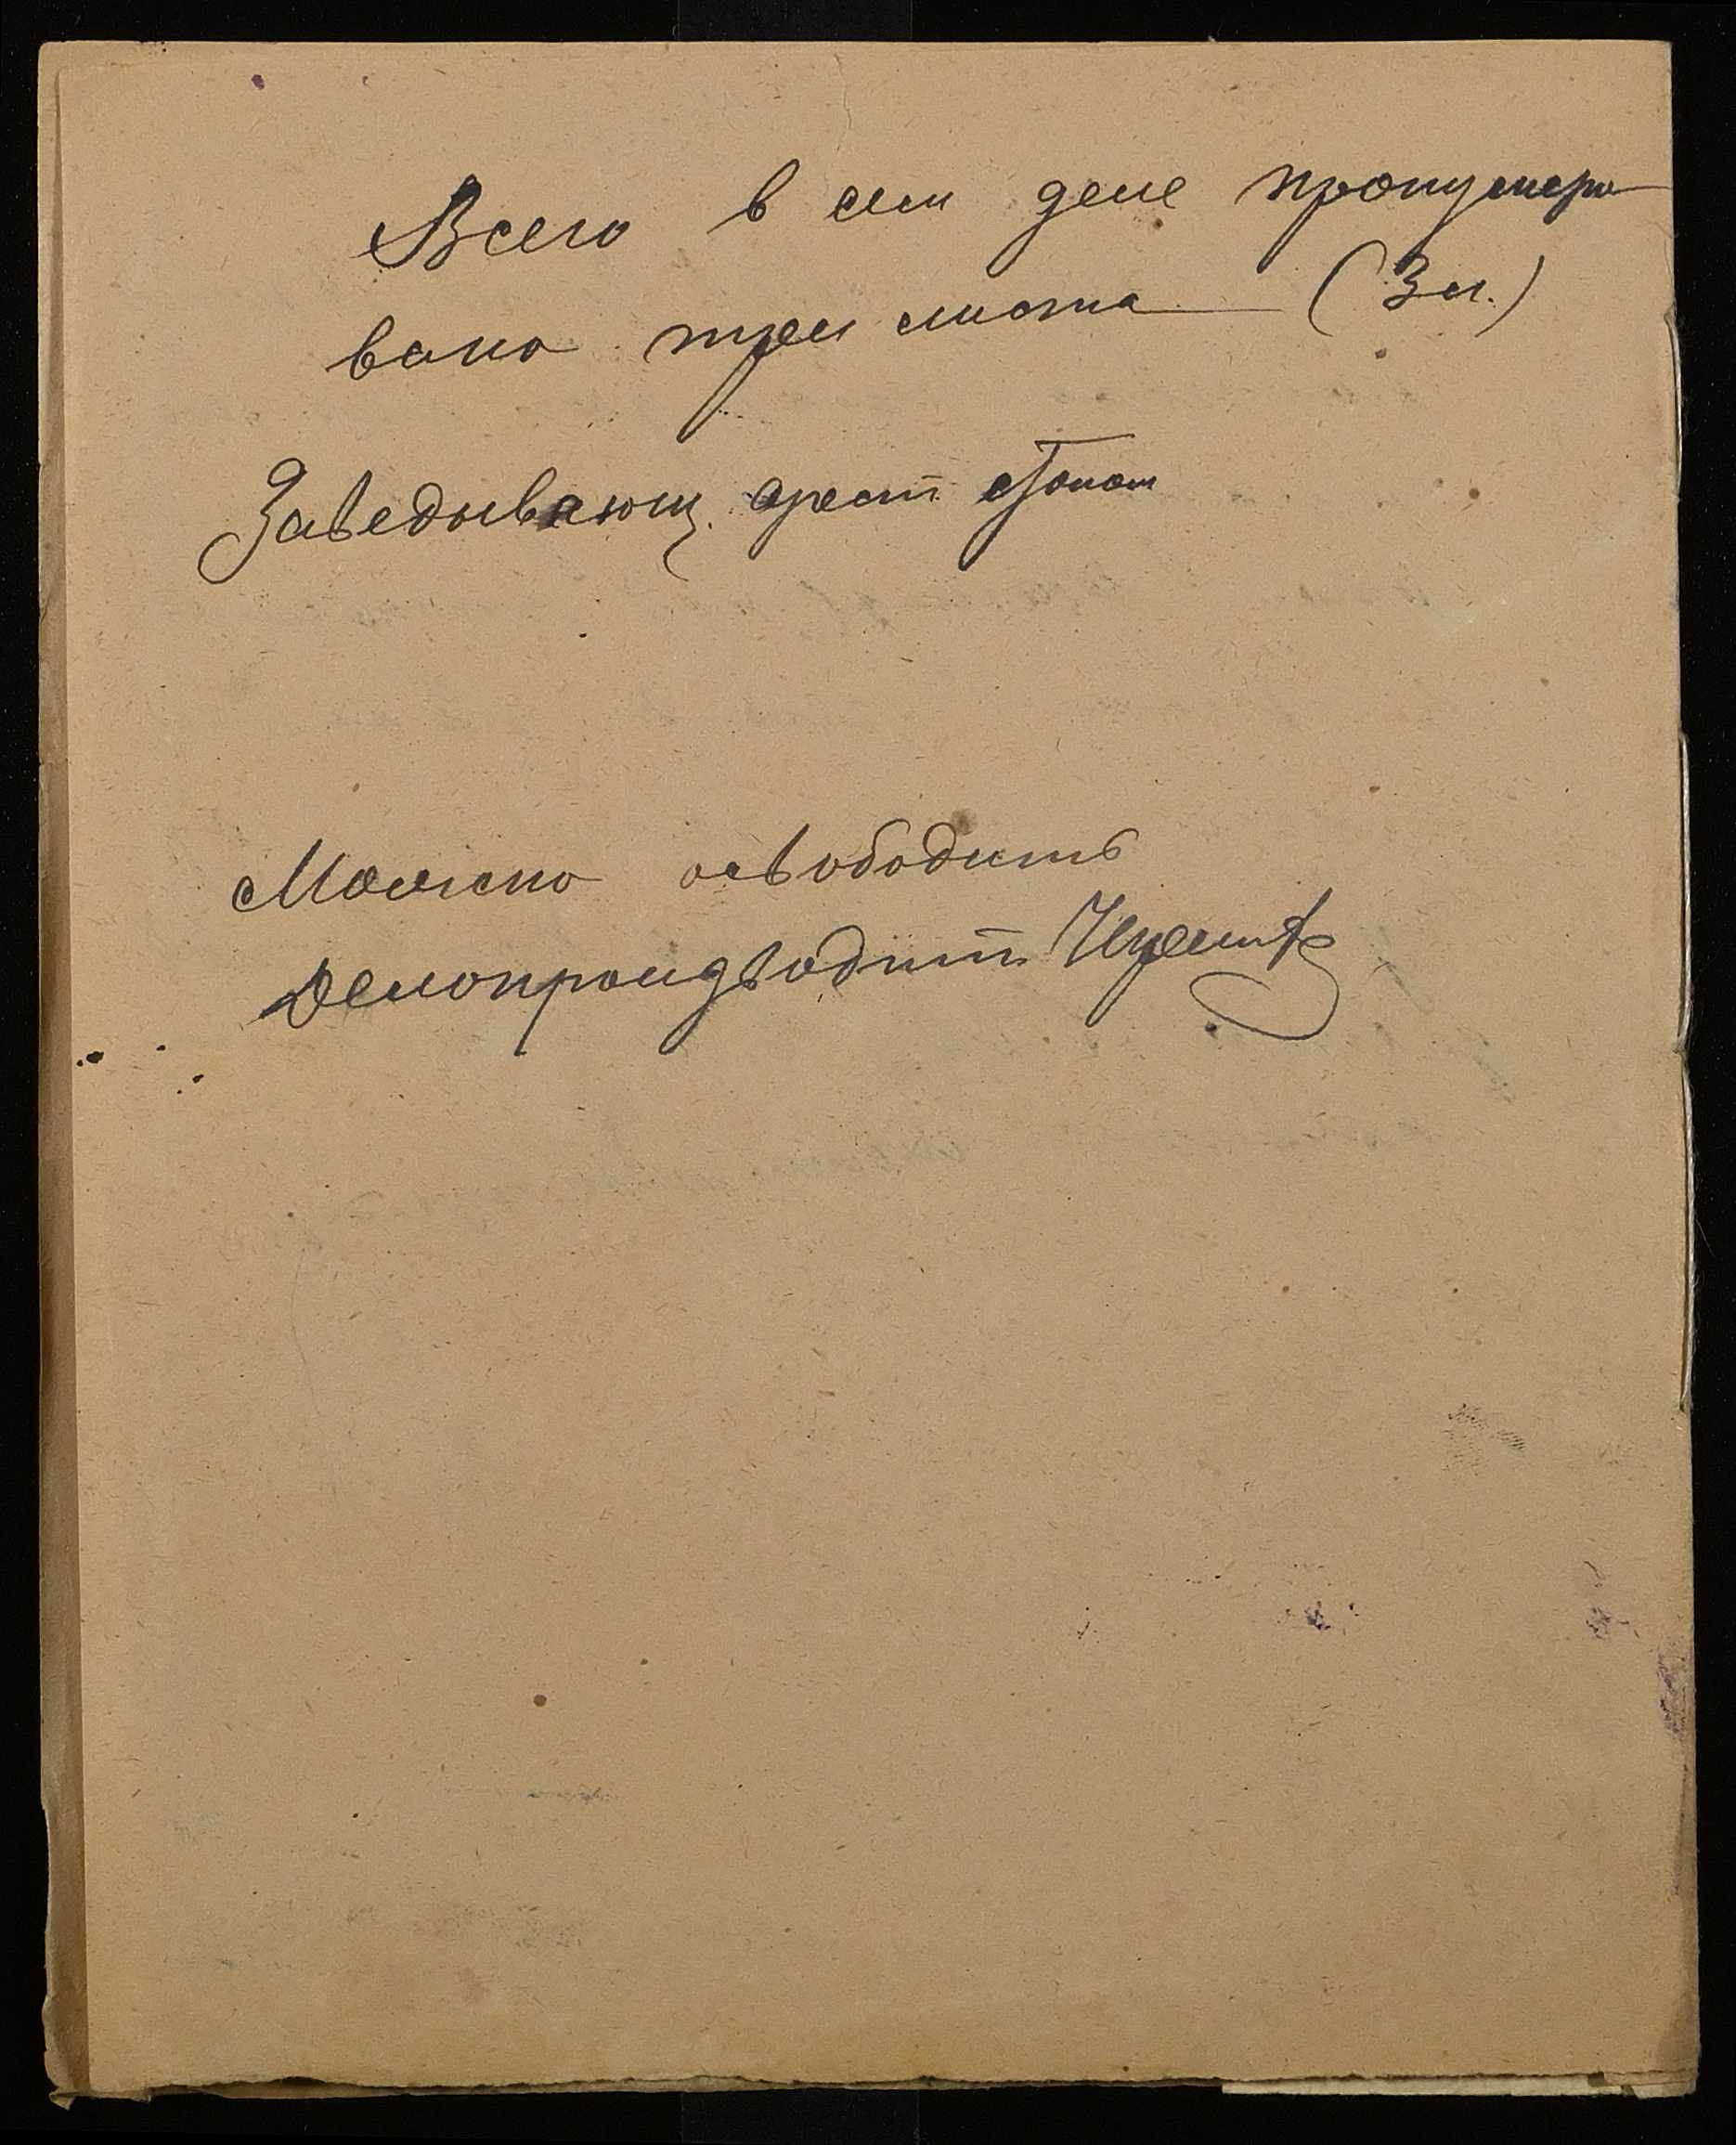 Всего в сем деле пронумеро
вано три листа (3 л.)
Заведывающ. арест столом
Можно освободить
Делопроизводит.